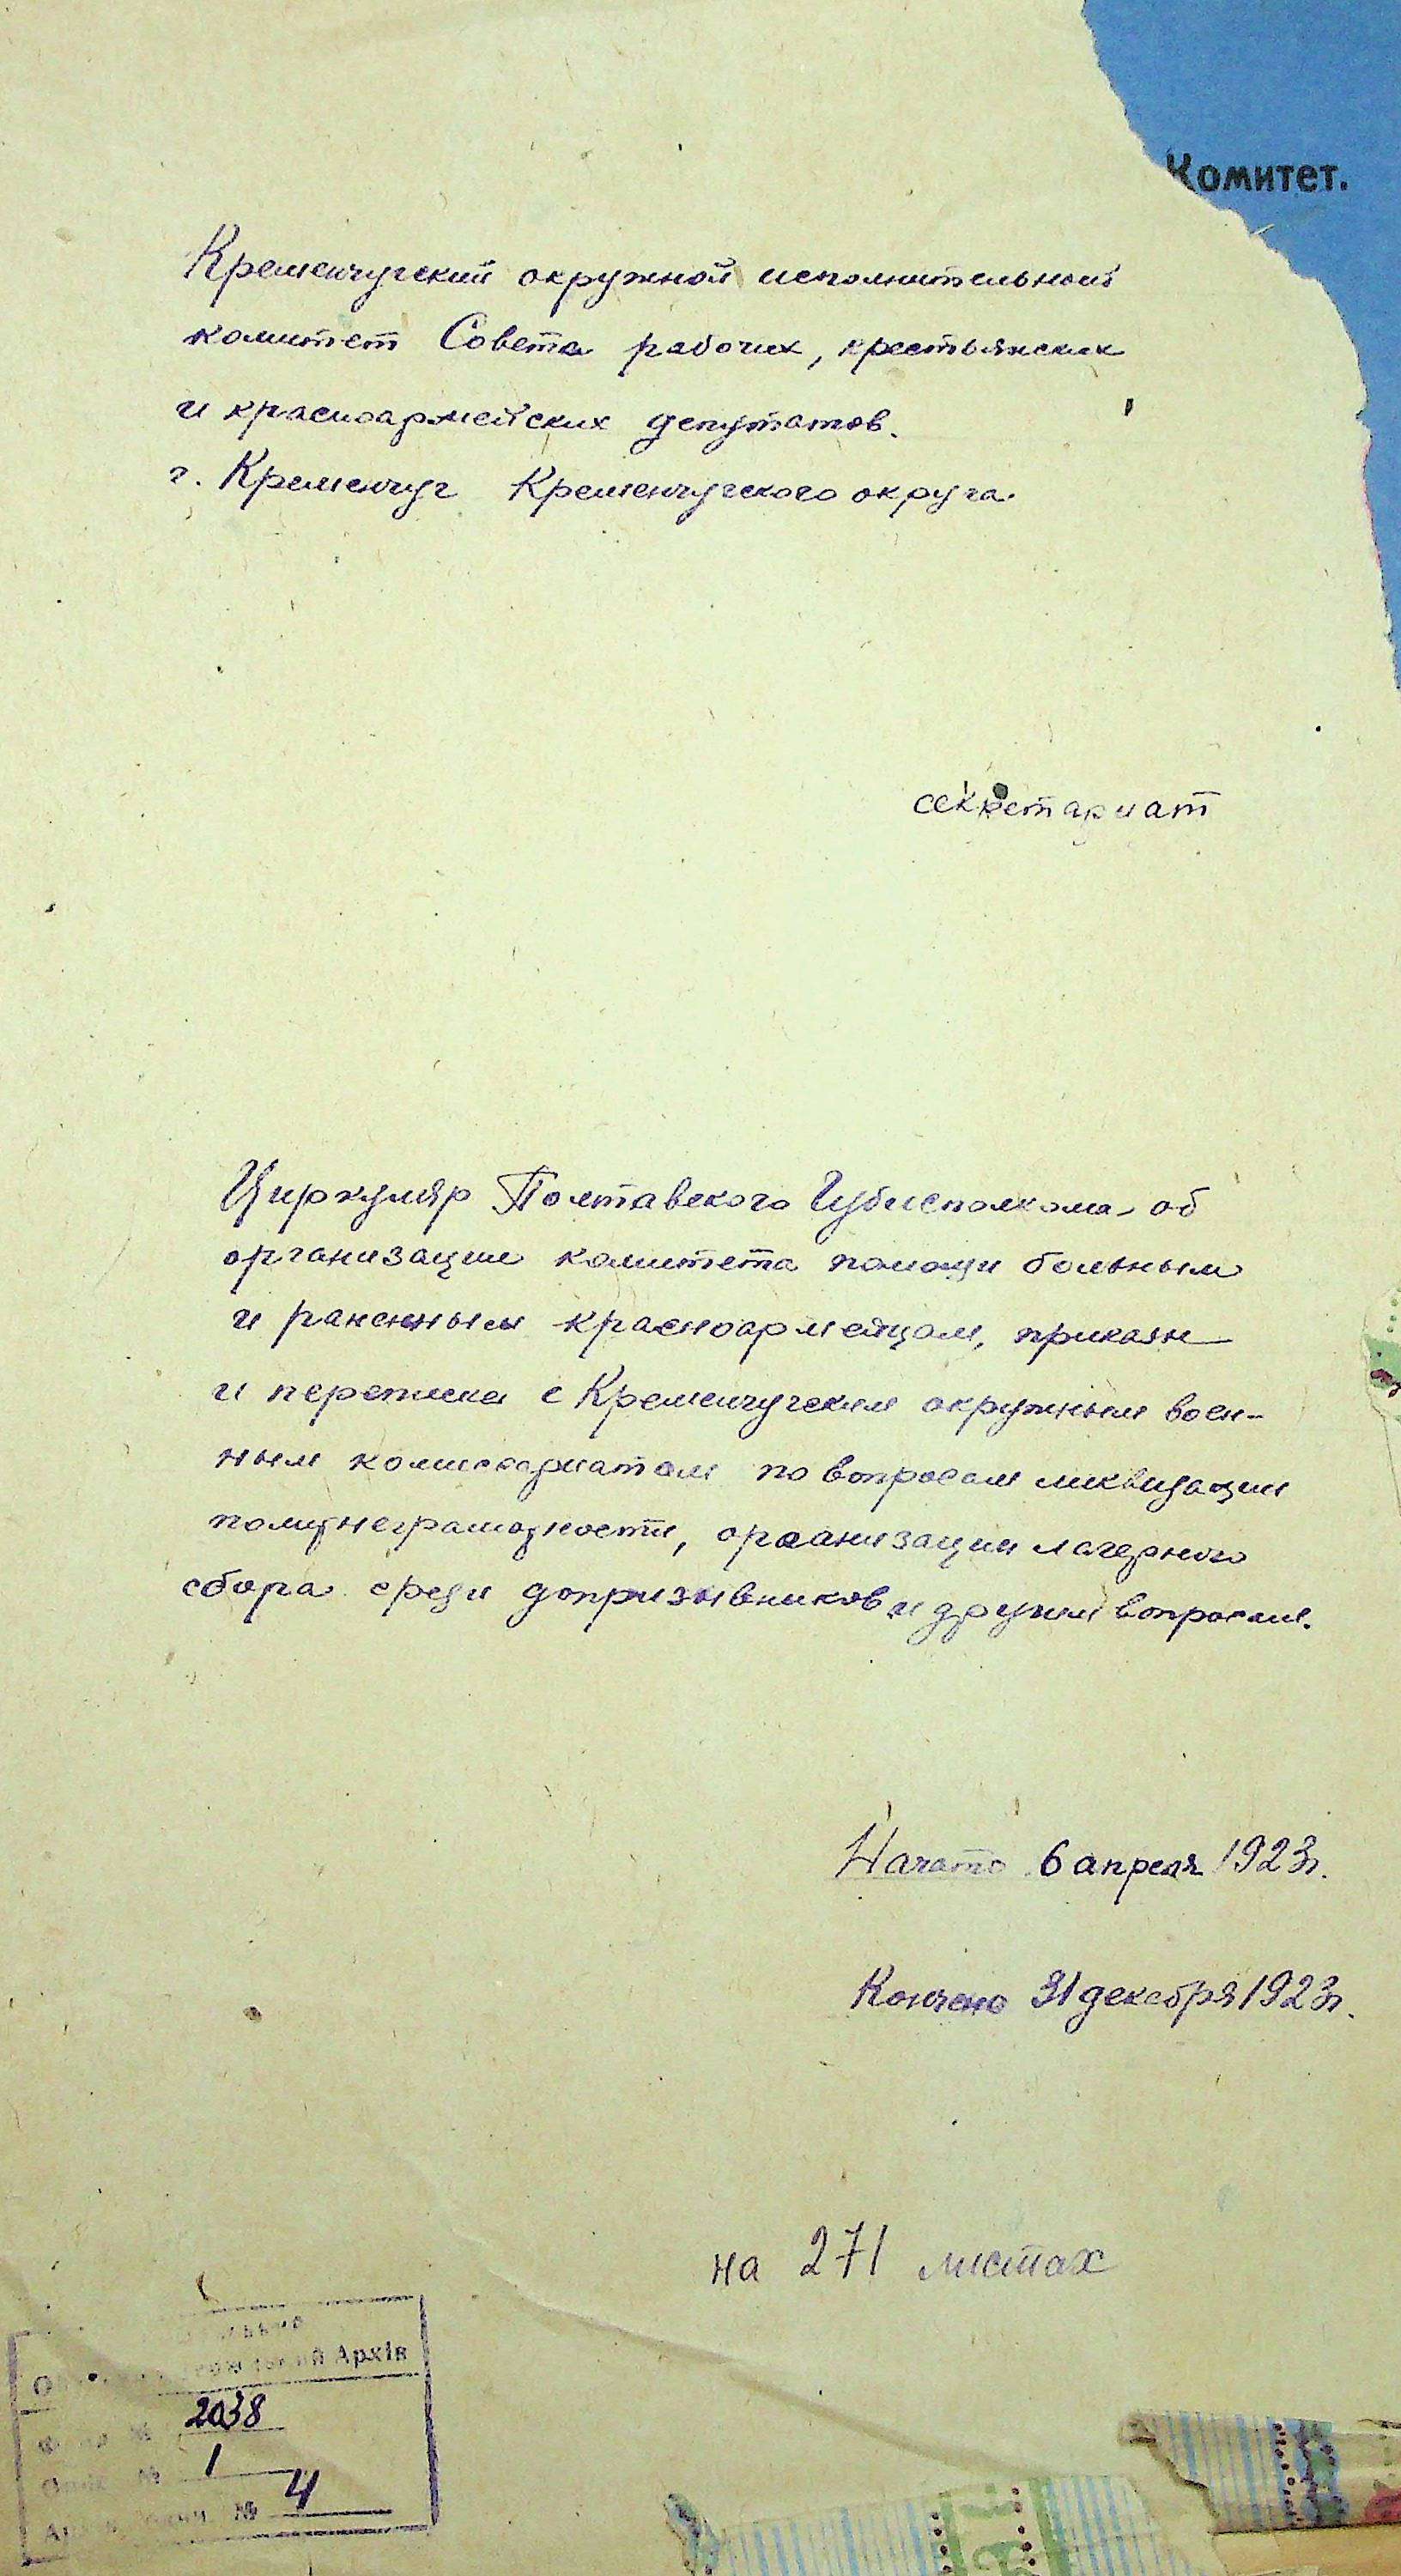 Комитет.
Кременчугский окружной исполнительный
комитет Совета рабочих, крестьянских
и красноармейских депутатов.
г. Кременчуг Кременчугского округа.
секретариат
Циркуляр Полтавского Губисполкома об
организации комитета помощи больным
и раненным красноармейцам, приказы
и переписка с Кременчугским окружным воен-
ным комиссариатом по вопросам ликвидации
политнеграмотности, организации лагерного
сбора среди допризывников и другим вопросам.
Начато 6 апреля 1923г.
Кончено 31 декабря 1923г.
на 271 листах
Архів
№ 2038
№ 1
№ 4